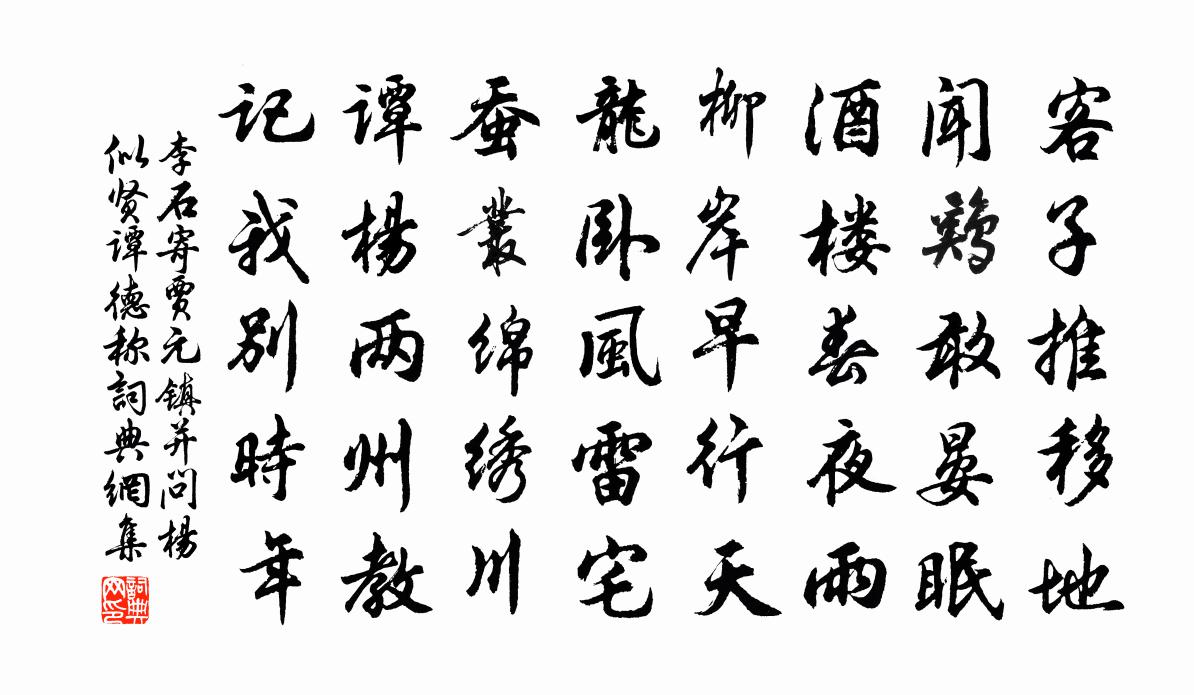 客子推移地
闻鸡敢晏眠
酒楼春夜雨
柳岸早行天
龍卧風雷宅
蚕叢绵绣川
谭楊两州教
记我别時年
李石寄贾元镇并问楊
似贤谭德称詞典網集
詞典網印